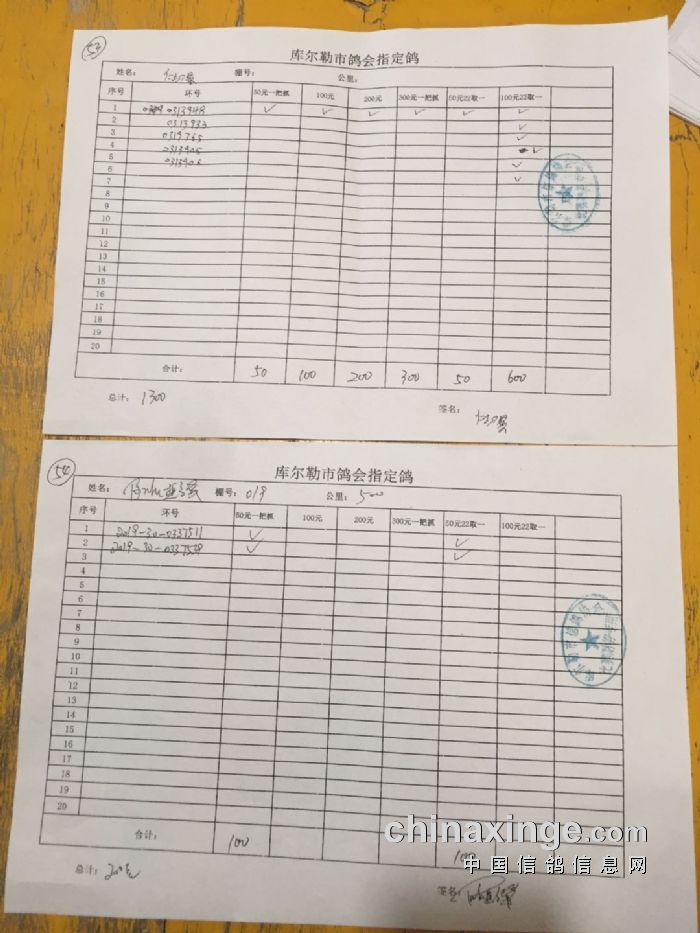 53
库尔勒市鸽会指定鸽
姓名： 棚号： 公里：
序号 环号 50元一把抓 100元 200元 300元一把抓 50元22取一 100元22取一
1 0313948 ✓ ✓ ✓ ✓ ✓ ✓
2 0313933 ✓
3 0319765 ✓
4 0313905 ✓
5 ✓
6 ✓
7
8
9
10
11
12
13
14
15
16
17
18
19
20
合计： 50 100 200 300 50 600
总计： 1300 签名：
54
库尔勒市鸽会指定鸽
姓名： 棚号：019 公里：500
序号 环号 50元一把抓 100元 200元 300元一把抓 50元22取一 100元22取一
1 2019-30-0337511 ✓ ✓
2 2019-30- ✓ ✓
3
4
5
6
7
8
9
10
11
12
13
14
15
16
17
18
19
20
合计： 100 100
总计： 200元 签名：
chinaxinge.com
中国信鸽信息网